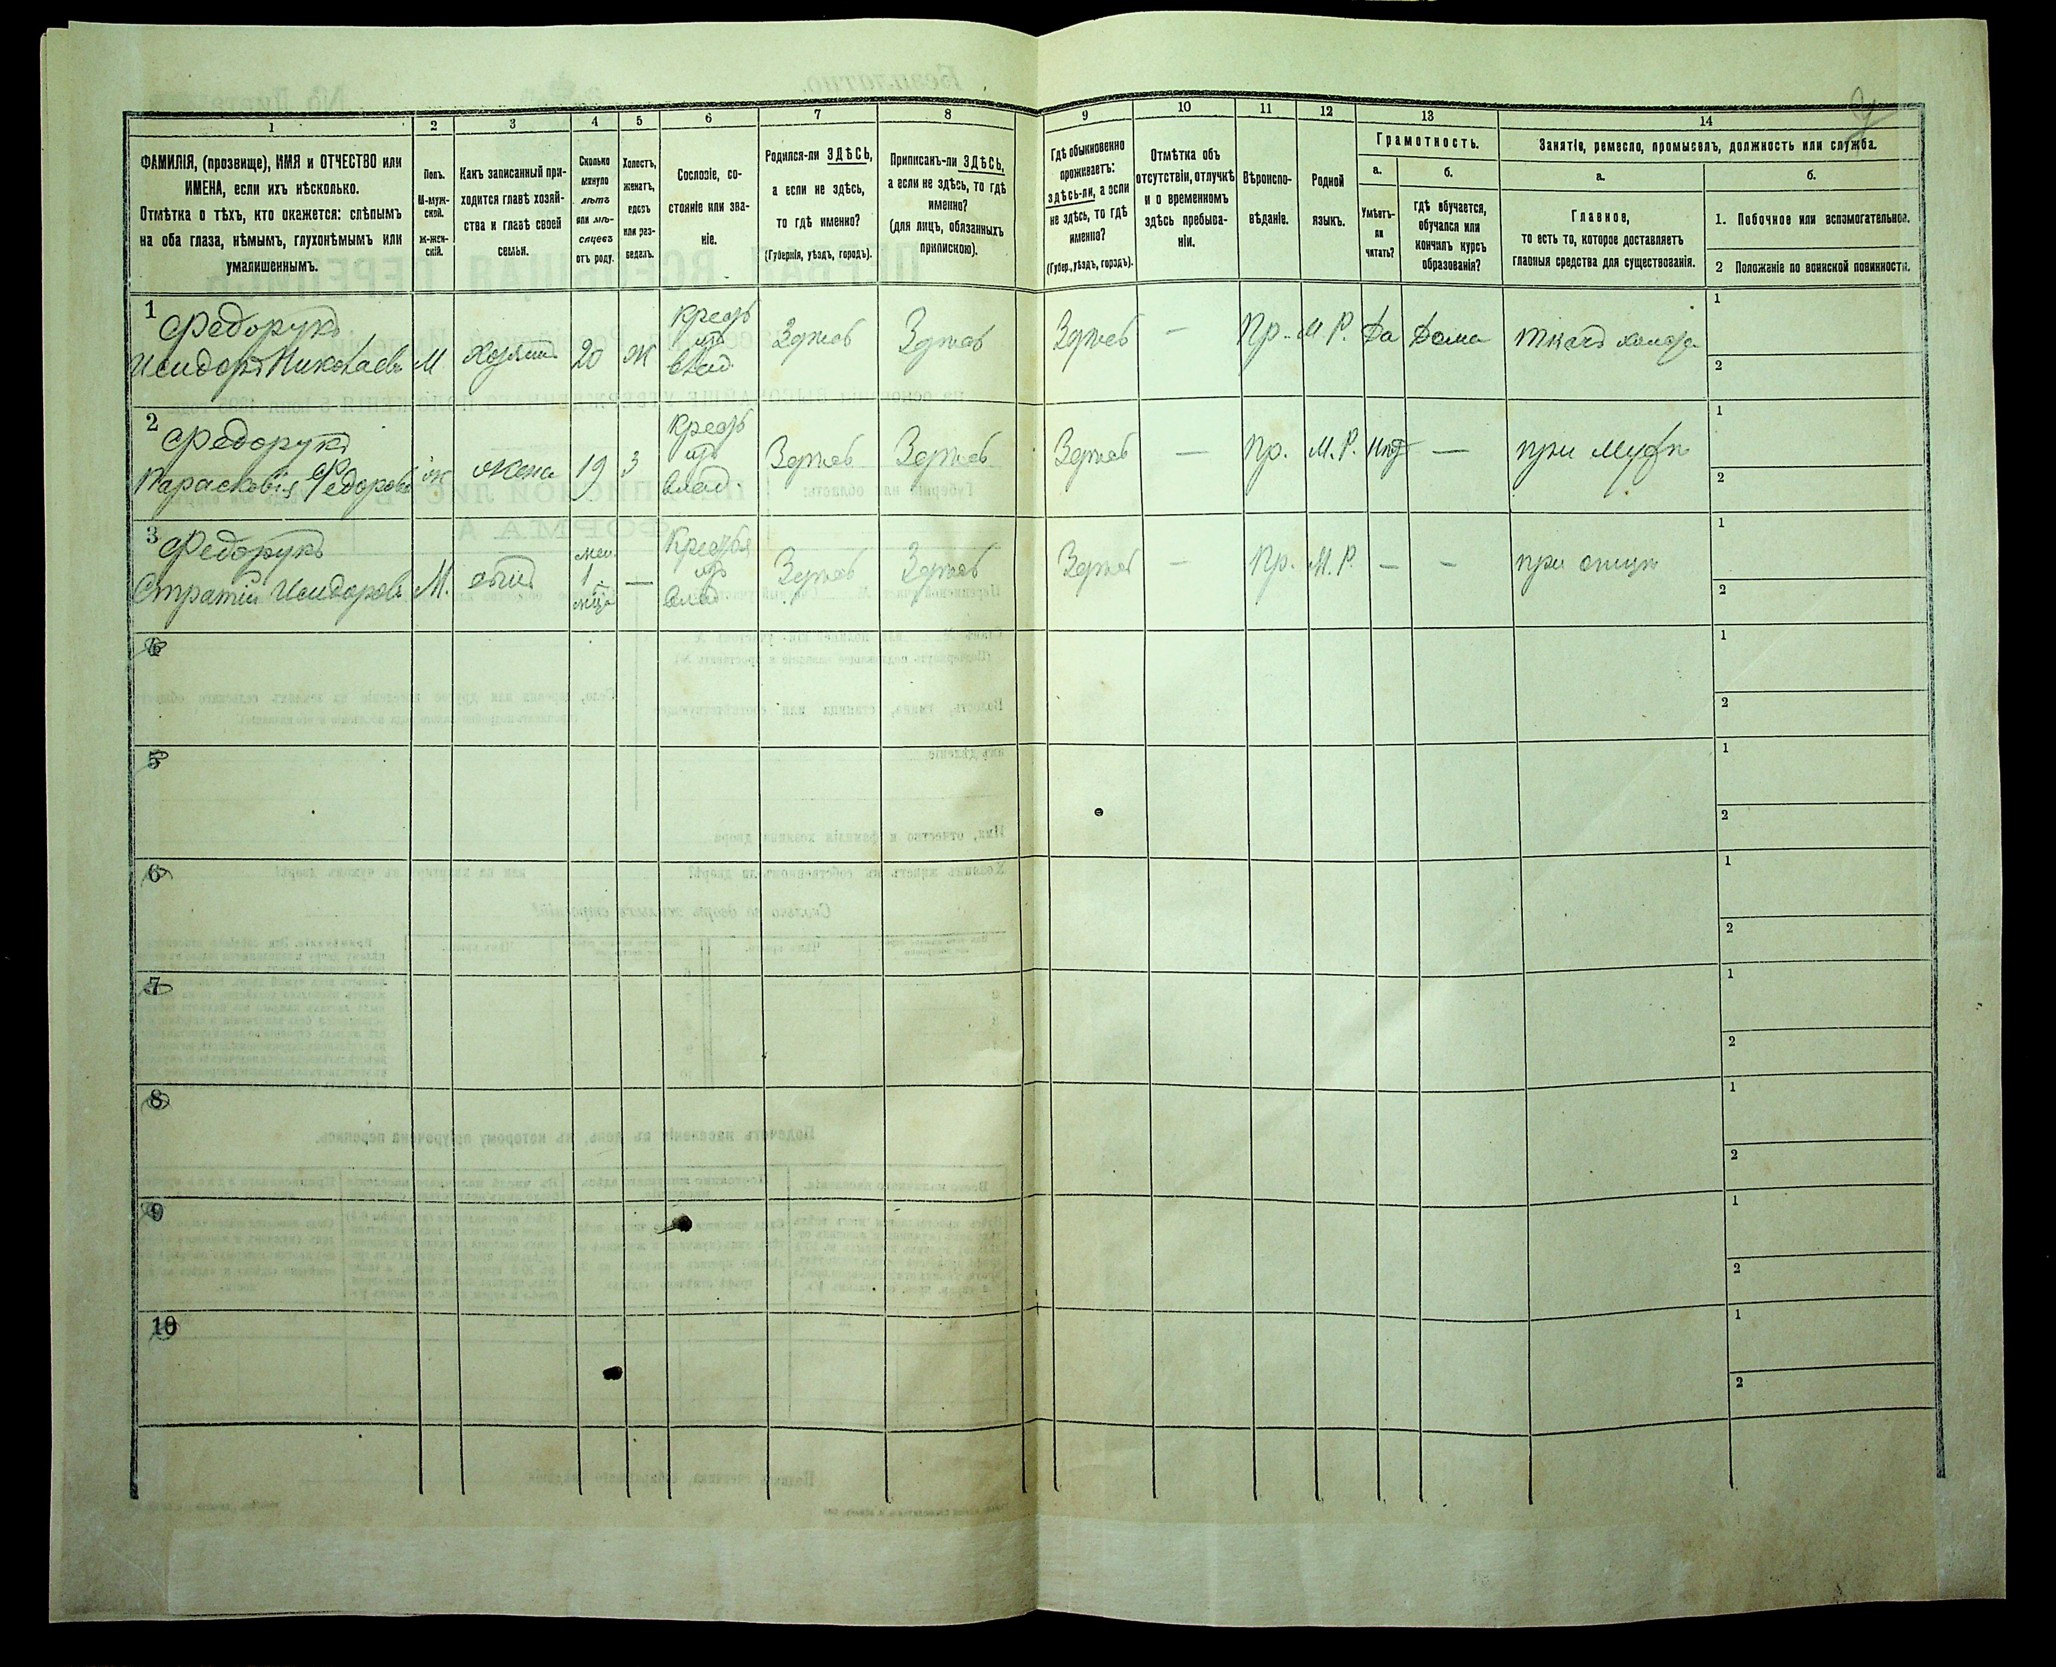 1
2
3
4
5
6
7
8
9
10
11
12
13
14
ФАМИЛІЯ, (прозвище), ИМЯ и ОТЧЕСТВО или
ИМЕНА, если ихъ нѣсколько.
Отмѣтка о тѣхъ, кто окажется: слѣпымъ
на оба глаза, нѣмымъ, глухонѣмымъ или
умалишеннымъ.
Полъ.
М-муж-
ской.
Ж-жен-
скій.
Какъ записанный при-
ходится главѣ хозяй-
ства и главѣ своей
семьи.
Сколько
минуло
лѣтъ
или мѣ-
сяцевъ
отъ роду.
Холостъ,
женатъ,
вдовъ
или раз-
веденъ.
Сословіе, со-
стояніе или зва-
ніе.
Родился-ли ЗДѢСЬ,
а если не здѣсь,
то гдѣ именно?
(Губернія, уѣздъ, городъ).
Приписанъ-ли ЗДѢСЬ,
а если не здѣсь, то гдѣ
именно?
(для лицъ, обязанныхъ
припискою).
Гдѣ обыкновенно
проживаетъ:
здѣсь-ли, а если
не здѣсь, то гдѣ
именно?
(Губер., уѣздъ, городъ).
Отмѣтка объ
отсутствіи, отлучкѣ
и о временномъ
здѣсь пребыва-
ніи.
Вѣроиспо-
вѣданіе.
Родной
языкъ.
Грамотность.
а.
Умѣетъ-
ли
читать?
б.
Гдѣ обучается,
обучался или
кончилъ курсъ
образованія?
Занятіе, ремесло, промыселъ, должность или служба.
а.
Главное,
то есть то, которое доставляетъ
главныя средства для существованія.
б.
1. Побочное или вспомогательное.
2 Положеніе по воинской повинности.
1
Федорукъ
Исидоръ Николаевъ М хозяинъ 20 Ж
Здѣсь Здѣсь Здѣсь — Пр. М. Р. Да Дома
1
2
2
Федорукъ
Параскевія Федорова Ж жена 19 З
влад.
Здѣсь Здѣсь Здѣсь — Пр. М. Р. Нѣтъ — при мужѣ
1
2
3
Федорукъ
Стратій Исидоровъ М. сынъ 1 —
влад
Здѣсь Здѣсь Здѣсь — Пр. М. Р. — — при отцѣ
1
2
4
1
2
5
1
2
6
1
2
7
1
2
8
1
2
9
1
2
10
1
2